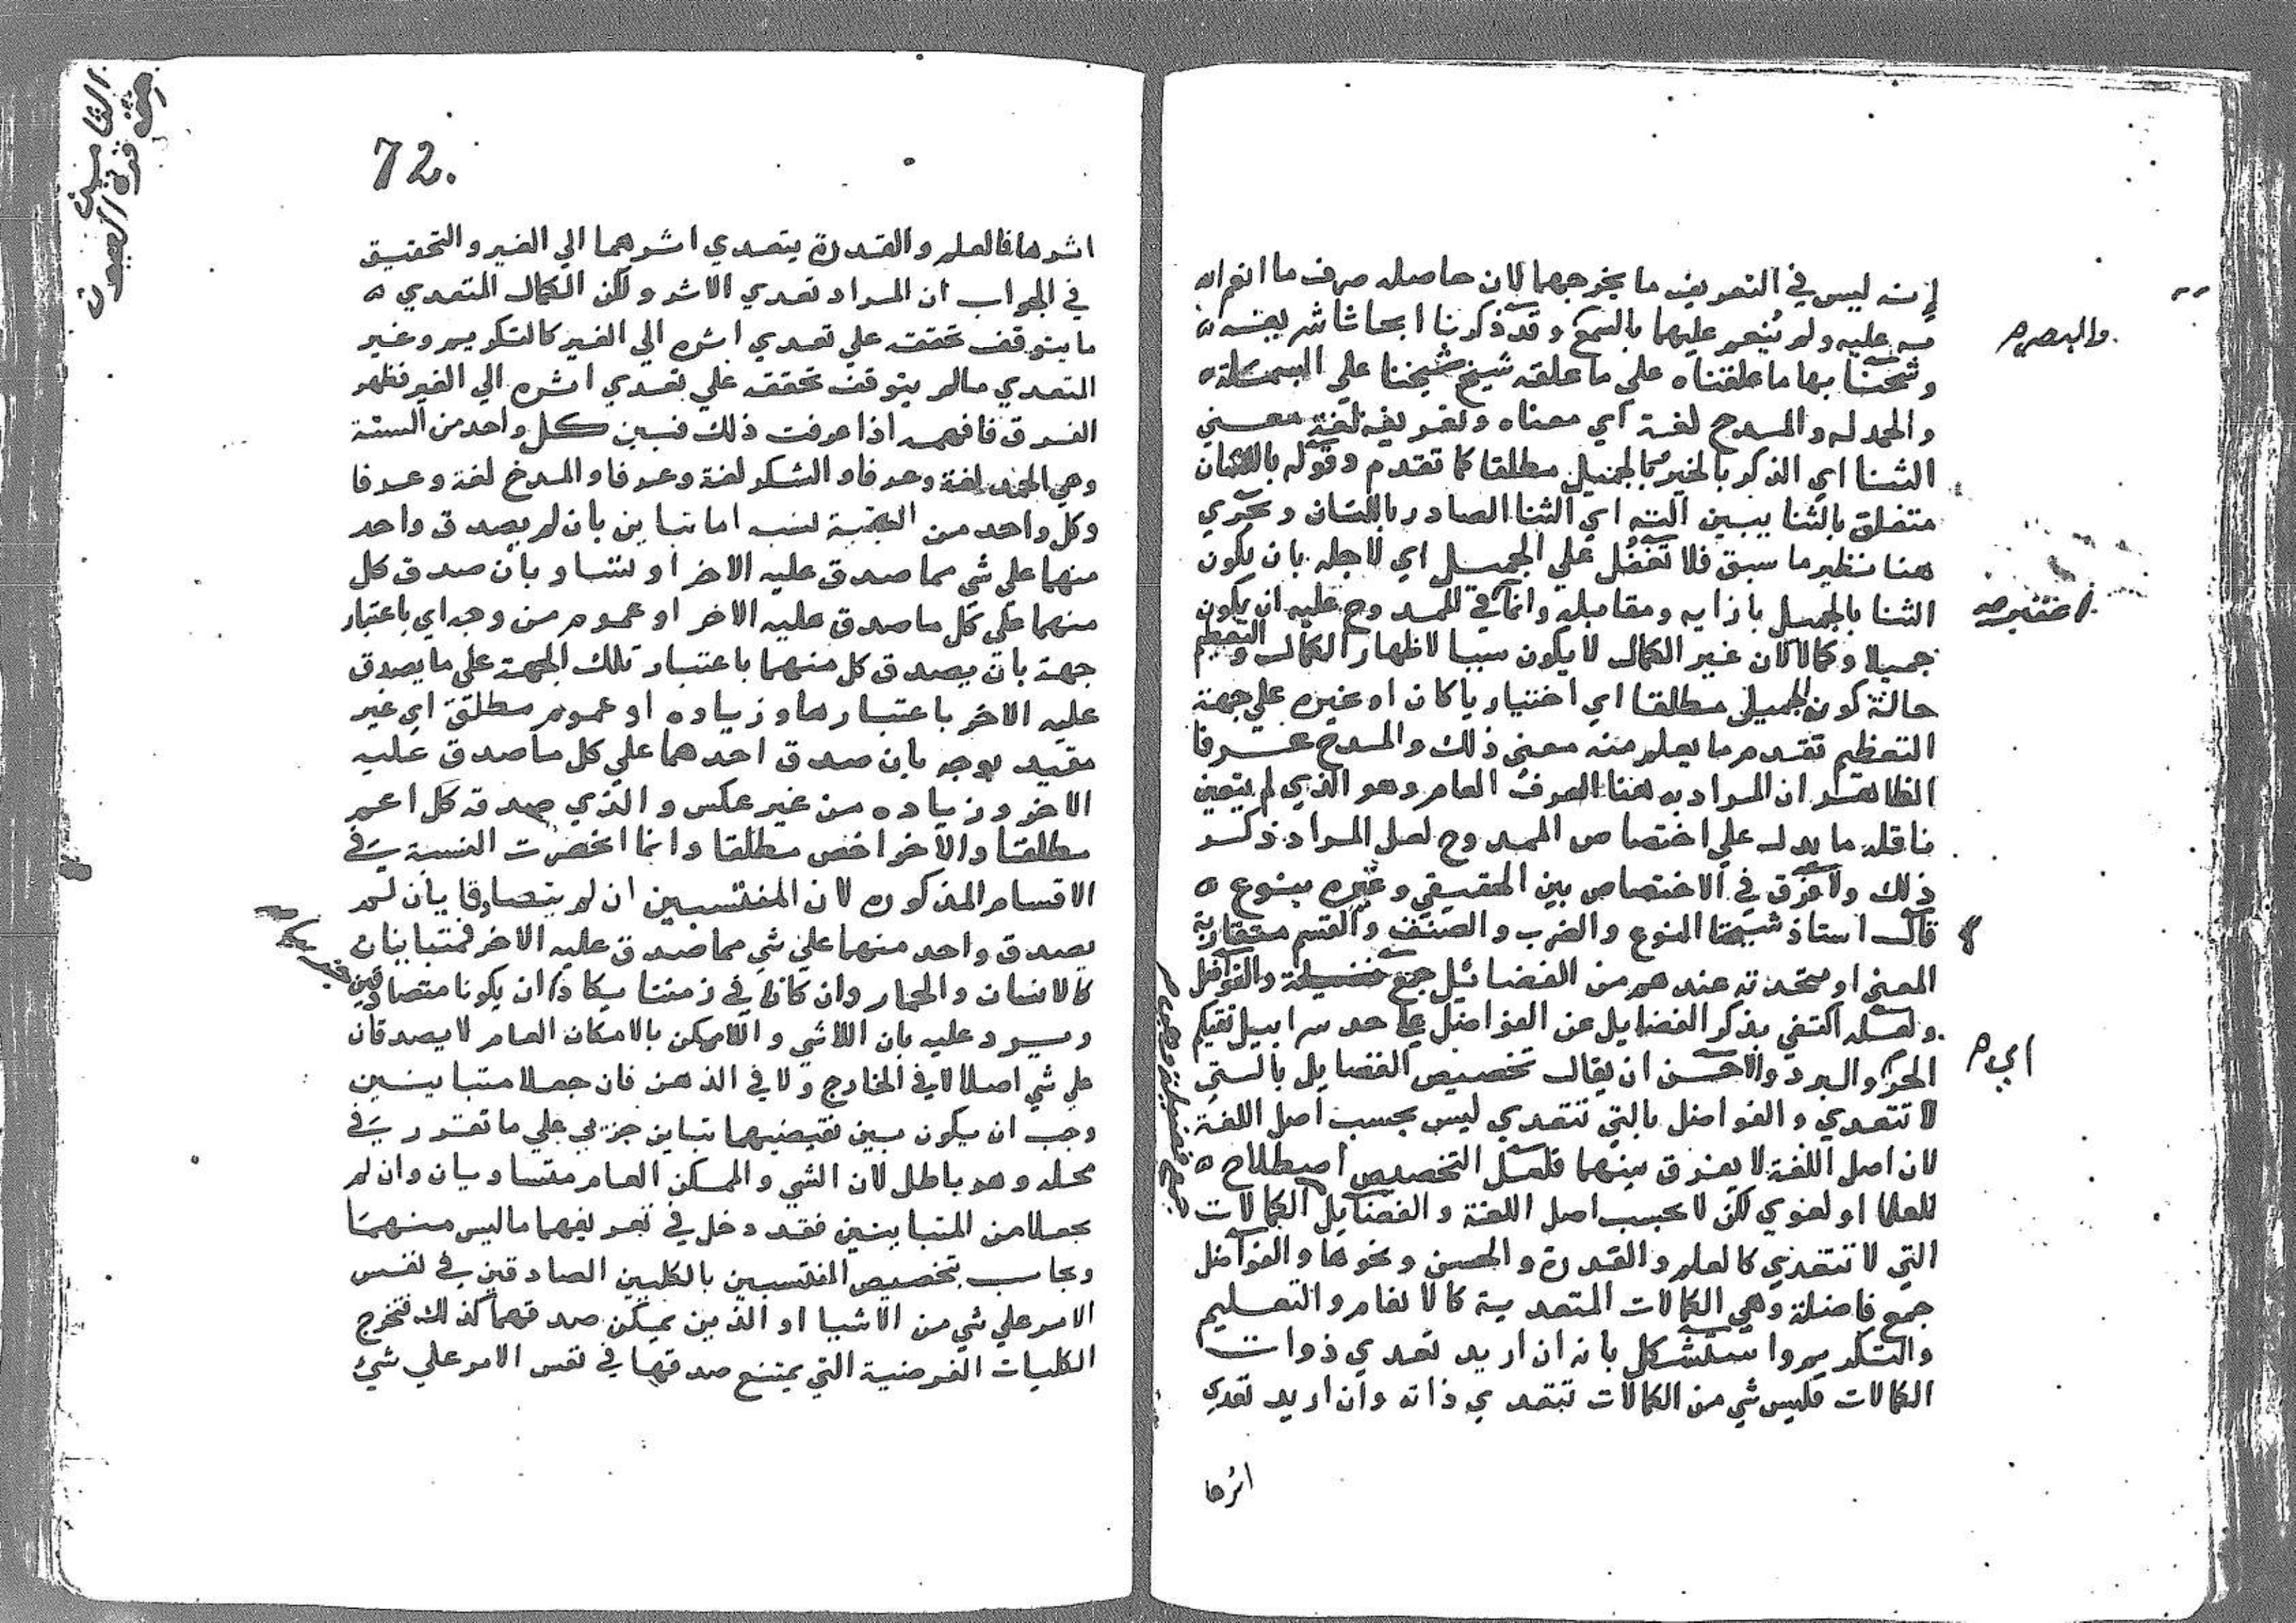 إنه ليس في التعريف ما يخرجهما لان حاصله صرف ما انعم الله
به عليه ولم يُنعم عليهما بالسمع وقد ذكرنا ابحاثا شريفة
والبصر م
وشحنا بها ما علقناه على ما علقه شيخ شيخنا علي البسملة
والحمدله والمدح لغة اي معناه وتعريفه لغة معني
الثنا اي الذكر بالخير بالجميل مطلقا كما تقدم وقوله باللسان
متعلق بالثنا يبين آلته اي الثنا الصادر باللسان ويجري
هنا نظير ما سبق فلا تغفل علي الجميل اي لاجله بان يكون
الثنا بالجميل بازايه ومقابله وانما في الممدوح عليه ان يكون
جميلا وكمالا لان غير الكمال لا يكون سببا لاظهار الكمال والتعظيم
حالة كون الجميل مطلقا اي اختياريا كان او غيره علي جهة
التعظيم تقدم ما يعلم منه معني ذلك والمدح عرفا
الظاهر ان المراد به هنا العرف العام وهو الذي لم يتعين
ناقله ما يدل علي اختصاص الممدوح لعل المراد ذكر
ذلك ولا فرق في الاختصاص بين الحقيقي وغيره بنوع
قال استاذ شيخنا النوع والضرب والصنف والقسم متقاربة
المعني او متحدته عندهم من الفضائل جمع فضيلة والفواضل
ولعله اكتفي بذكر الفضايل عن الفواضل علي حد سرابيل تقيكم
الحر والبرد والاحسن ان يقال تخصيص الفضايل بالتي
اي م
لا تتعدي والفواضل بالتي تتعدي ليس بحسب اصل اللغة
لان اصل اللغة لا يفرق بينهما فلعل التخصيص اصطلاح
للعلما او لغوي لكن لا بحسب اصل اللغة والفضايل الكمالات
التي لا تتعدي كالعلم والقدرة والحسن ونحوها والفواضل
جمع فاضلة وهي الكمالات المتعدية كالانعام والتعليم
والتكريم واستشكل بانه ان اريد تعدي ذوات
الكمالات فليس شي من الكمالات تتعدي ذاته وان اريد تعدي
اثرها
72.
اثرها فالعلم والقدرة يتعدي اثرهما الي الغير والتحقيق
في الجواب ان المراد تعدي الاثر ولكن الكمال المتعدي
ما يتوقف تحققه علي تعدي اثره الي الغير كالتكريم وغير
المتعدي ما لم يتوقف تحققه علي تعدي اثره الي الغير فظهر
الفرق فافهم اذا عرفت ذلك فبين كل واحد من الستة
وهي الحمد لغة وعرفا والشكر لغة وعرفا والمدح لغة وعرفا
وكل واحد من البقية نسب اما تباين بان لم يصدق واحد
منهما علي شي مما صدق عليه الاخر او تساو بان صدق كل
منهما علي كل ما صدق عليه الاخر او عموم من وجه اي باعتبار
جهة بان يصدق كل منهما باعتبار تلك الجهة على ما يصدق
عليه الاخر باعتبارها وزياده او عموم مطلق اي غير
مقيد بوجه بان صدق احدهما علي كل ما صدق عليه
الاخر وزياده من غير عكس والذي صدق كل اعم
مطلقا والآخر اخص مطلقا وانما انحصرت النسبة في
الاقسام المذكوره لان المنتسبين ان لم يتصادقا بان لم
يصدق واحد منهما علي شي مما صدق عليه الاخر فمتباينان
كالانسان والحمار وان كانا في زمننا يكادان يكونا متصادقين
ويرد عليه بان اللاشي واللاممكن بالامكان العام لا يصدقان
علي شي اصلا لا في الخارج ولا في الذهن فان جعلا متباينين
وجب ان يكون بين نقيضيهما تباين جزيي علي ما تقرر في
محله وهو باطل لان الشي والممكن العام متساويان وان لم
يجعلا من المتباينين فقد دخل في تعريفهما ما ليس منهما
ويجاب بتخصيص المنتسبين بالكليين الصادقين في نفس
الامر علي شي من الاشيا او الذين يمكن صدقهما كذلك فتخرج
الكليات الفرضية التي يمتنع صدقها في نفس الامر علي شئ